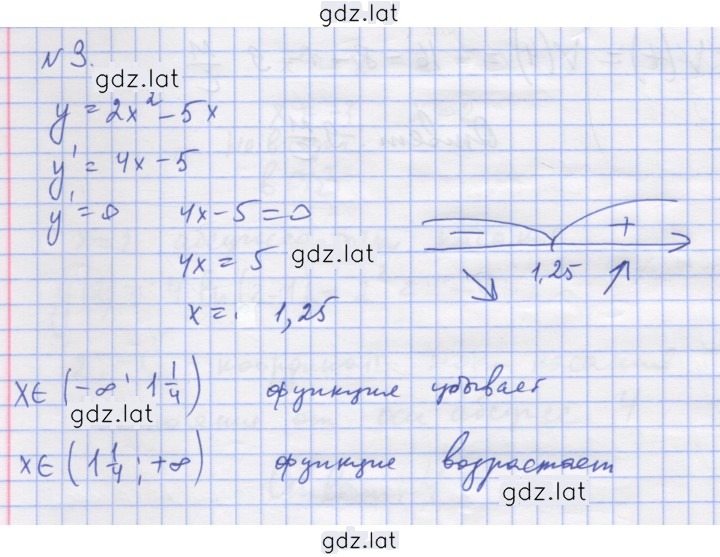 gdz.lat
N 3.
gdz.lat
y = 2x² - 5x
y' = 4x - 5
y' = 0 4x - 5 = 0
4x = 5 gdz.lat
x = 1,25
− +
1,25
x ∈ (-∞; 1 1/4) функция убывает
gdz.lat
x ∈ (1 1/4; +∞) функция возрастает
gdz.lat
gdz.lat